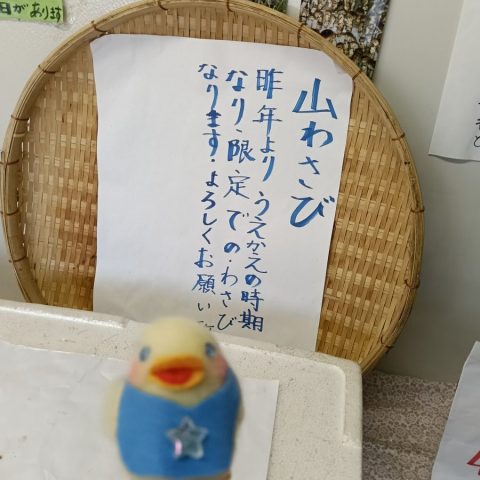 日があります
山わさび
昨年よりうえかえの時期
なり・限定での・わさび
なります・よろしくお願い